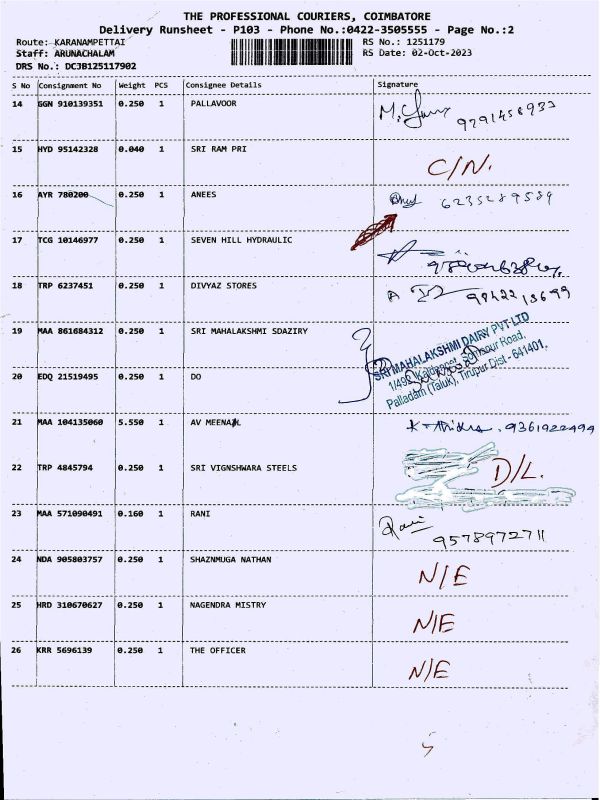 THE PROFESSIONAL COURIERS, COIMBATORE
Delivery Runsheet - P103 - Phone No.:0422-3505555 - Page No.:2
Route: KARANAMPETTAI RS No.: 1251179
Staff: ARUNACHALAM RS Date: 02-Oct-2023
DRS No.: DCJB125117902
S No Consignment No Weight PCS Consignee Details Signature
14 GGN 910139351 0.250 1 PALLAVOOR 9791458933
15 HYD 95142328 0.040 1 SRI RAM PRI C/N.
16 AYR 780200 0.250 1 ANEES 6235289589
17 TCG 10146977 0.250 1 SEVEN HILL HYDRAULIC
18 TRP 6237451 0.250 1 DIVYAZ STORES 9842213699
19 MAA 861684312 0.250 1 SRI MAHALAKSHMI SDAZIRY
SRI MAHALAKSHMI DAIRY PVT LTD
Road,
Palladam (Taluk), Tirupur Dist - 641401.
20 EDQ 21519495 0.250 1 DO
21 MAA 104135060 5.550 1 AV MEENAL 9361922499
22 TRP 4845794 0.250 1 SRI VIGNSHWARA STEELS D/L.
23 MAA 571090491 0.160 1 RANI Rani 9578972711
24 NDA 905803757 0.250 1 SHAZNMUGA NATHAN N/E
25 HRD 310670627 0.250 1 NAGENDRA MISTRY N/E
26 KRR 5696139 0.250 1 THE OFFICER N/E